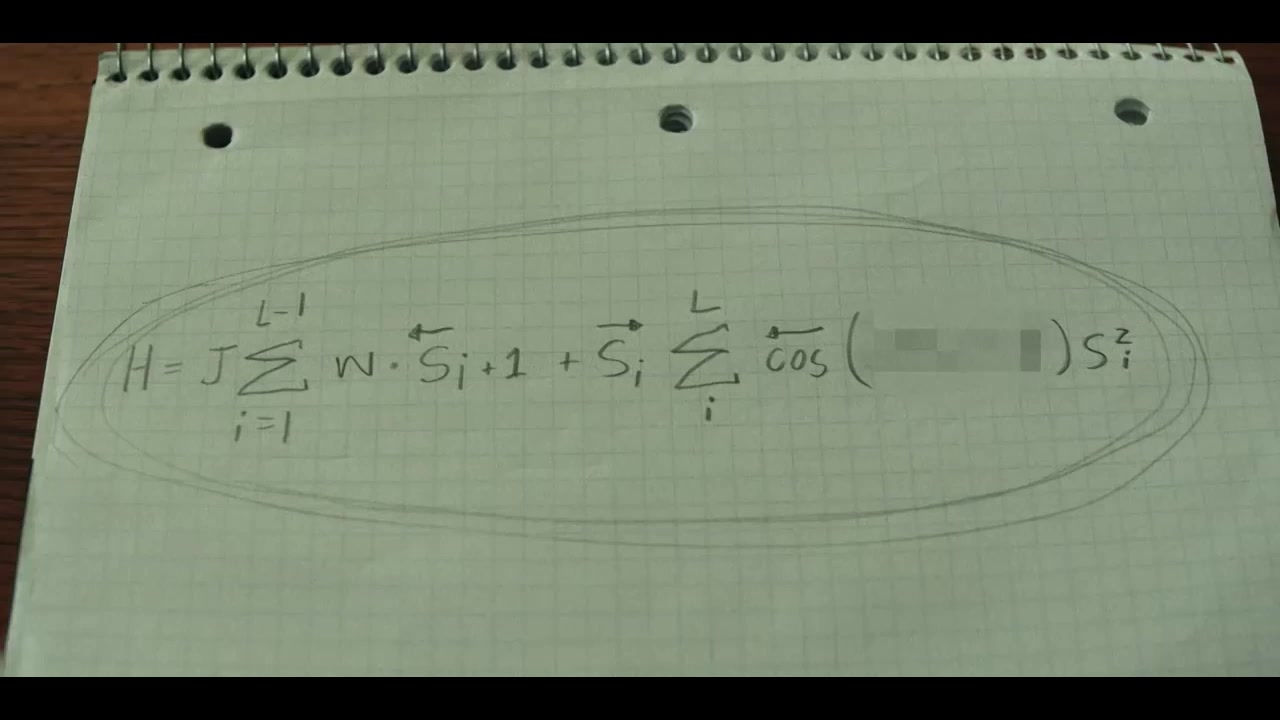 H = J \sum_{i=1}^{L-1} W \cdot \overleftarrow{S}_i + 1 + \overrightarrow{S}_i \sum_{i}^{L} \overleftarrow{cos} ( ) S_i^2